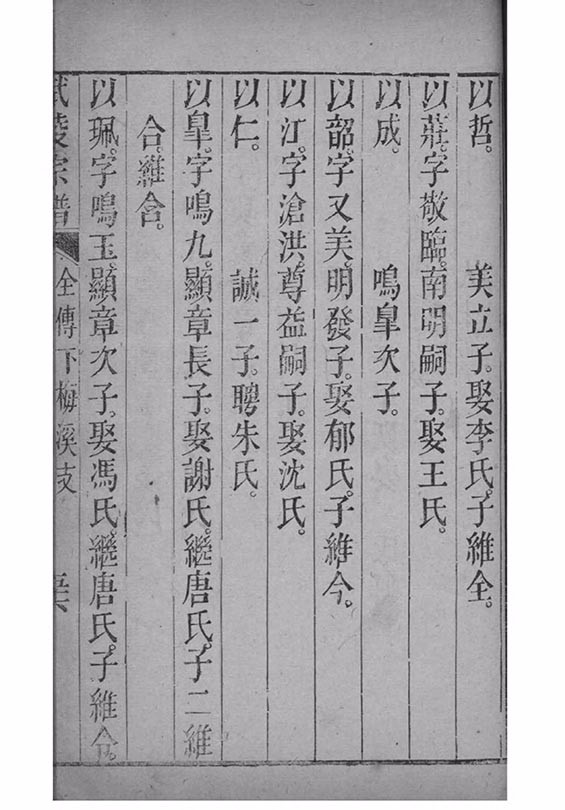 以哲。美立子。娶李氏。子維全。
以莊。字敬臨。南明嗣子。娶王氏。
以成。鳴臯次子。
以韶。字又美。明發子。娶郁氏。子維今。
以江。字滄洪。尊益嗣子。娶沈氏。
以仁。誠一子。聘朱氏。
以臯。字鳴九。顯章長子。娶謝氏。繼唐氏。子二維
合。維含。
以珮。字鳴玉。顯章次子。娶馮氏。繼唐氏。子維令。
武陵宗譜 全傳下梅溪支